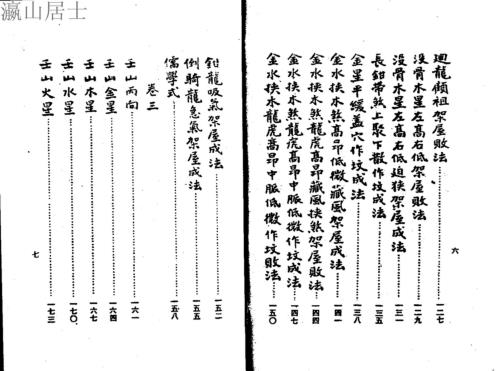 瀛山居士
迴龍顧祖架屋敗法……一二七
沒骨水星左高右低架屋敗法……一二九
沒骨水星左高右低迫狹架屋成法……一三一
長鉗帶煞上聚下散作坟成法……一三五
金星平緩蓋穴作坟成法……一三八
金水挾木煞高昂低微藏風架屋成法……一四一
金水挾木煞龍虎高昂藏風挾煞架屋敗法……一四四
金水挾木龍虎高昂中脈低微作坟成法……一四七
金水挾木龍虎高昂中脈低微作坟敗法……一五〇
六
鉗龍吸氣架屋成法……一五二
倒騎龍急氣架屋成法……一五五
儒學式……一五八
卷三
壬山丙向……一六一
壬山金星……一六四
壬山木星……一六七
壬山水星……一七〇
壬山火星……一七三
七